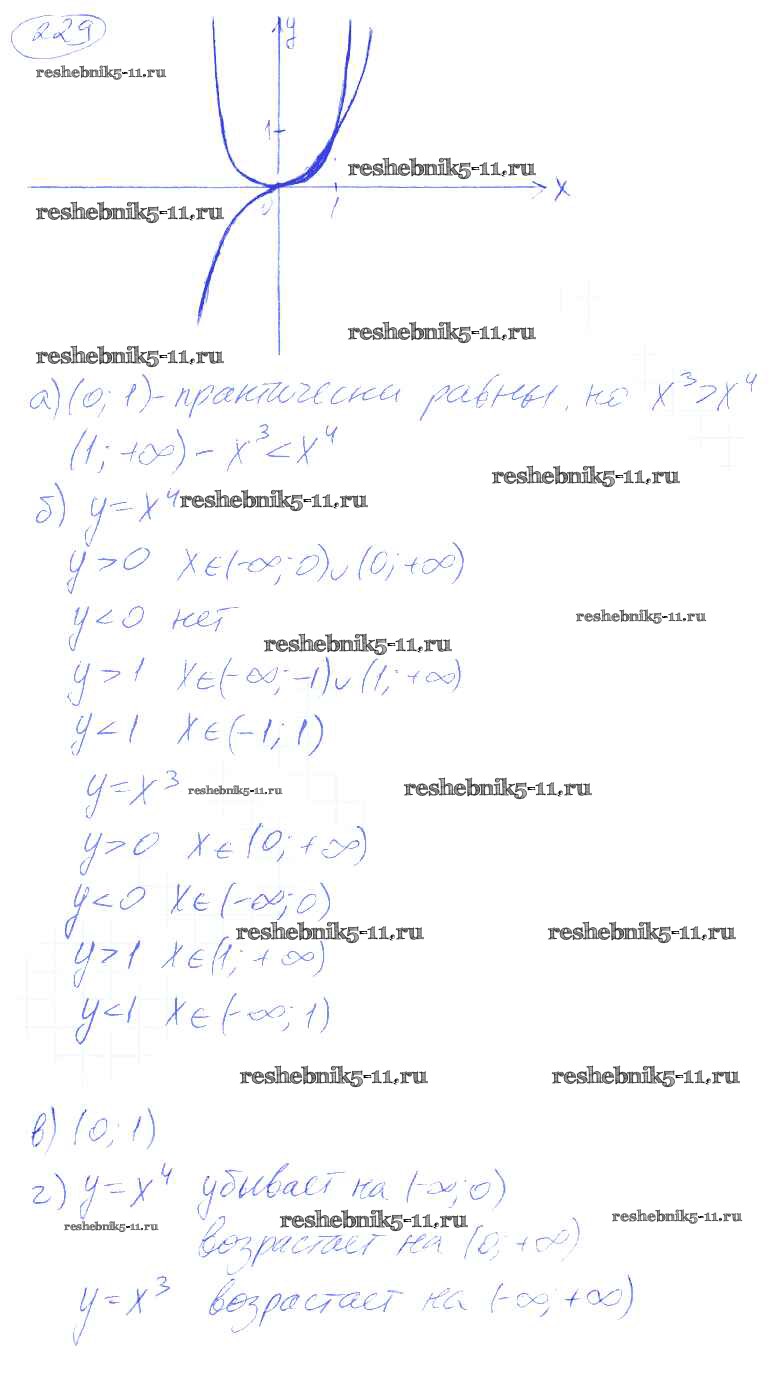 229
y
reshebnik5-11.ru
1
reshebnik5-11.ru
0 1 x
reshebnik5-11.ru
reshebnik5-11.ru
reshebnik5-11.ru
а) (0; 1) - практически равны, но x³>x⁴
(1; +∞) - x³<x⁴
reshebnik5-11.ru
б) y=x⁴
reshebnik5-11.ru
y>0 x∈(-∞; 0)∪(0; +∞)
y<0 нет
reshebnik5-11.ru
reshebnik5-11.ru
y>1 x∈(-∞; -1)∪(1; +∞)
y<1 x∈(-1; 1)
y=x³
reshebnik5-11.ru
reshebnik5-11.ru
y>0 x∈(0; +∞)
y<0 x∈(-∞; 0)
reshebnik5-11.ru
reshebnik5-11.ru
y>1 x∈(1; +∞)
y<1 x∈(-∞; 1)
reshebnik5-11.ru
reshebnik5-11.ru
в) (0; 1)
г) y=x⁴ убывает на (-∞; 0)
reshebnik5-11.ru
reshebnik5-11.ru
reshebnik5-11.ru
возрастает на (0; +∞)
y=x³ возрастает на (-∞; +∞)